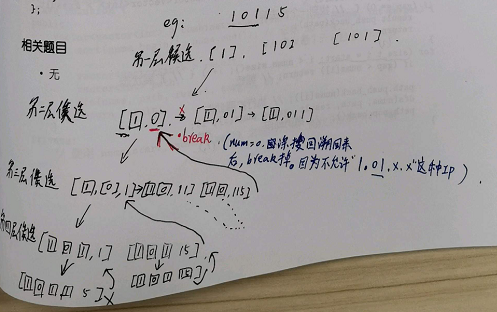 };
eg: 10115
相关题目
• 无
第一层候选. [1], [10] [101].
第二层候选 [1,0] → [1,01] → [1,011]
×
·break. (num=0.
后, break掉。因为不允许"1.01.x.x"这种IP).
第三层候选 [1,[0],1]→[1[0],11] [1[0],115]
第四层候选 [1 0 1,1] [1 0 1 15].
[1 0 1,1 5] × [1 0 1 15]